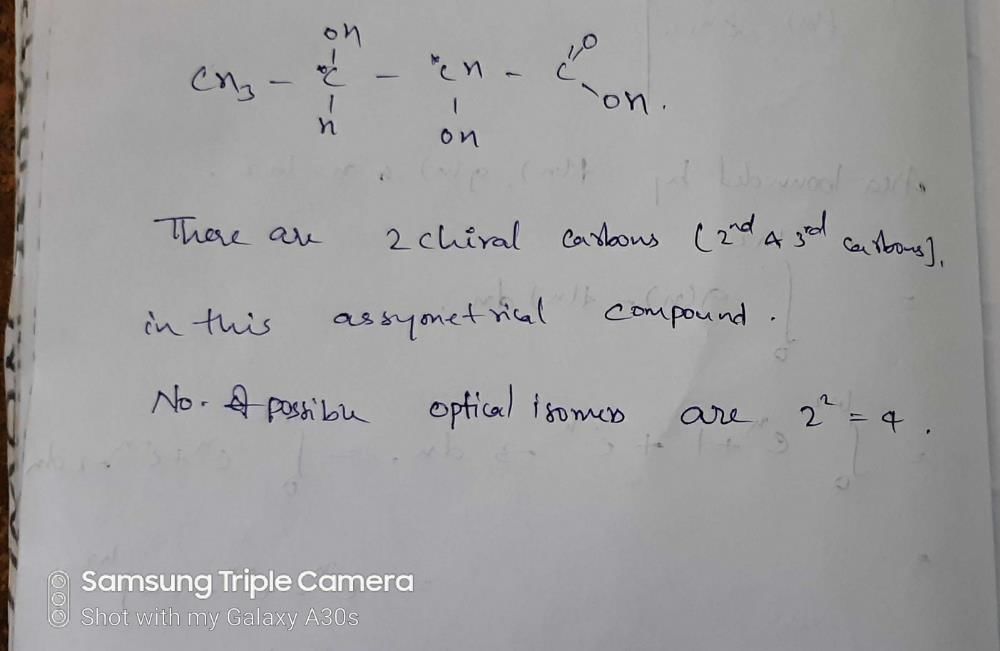 OH
CH3 - *C - *CH - C=O
H OH OH.
There are 2 chiral carbons (2nd & 3rd carbons],
in this assymetrical compound.
No. of possible optical isomers are 2² = 4.
Samsung Triple Camera
Shot with my Galaxy A30s